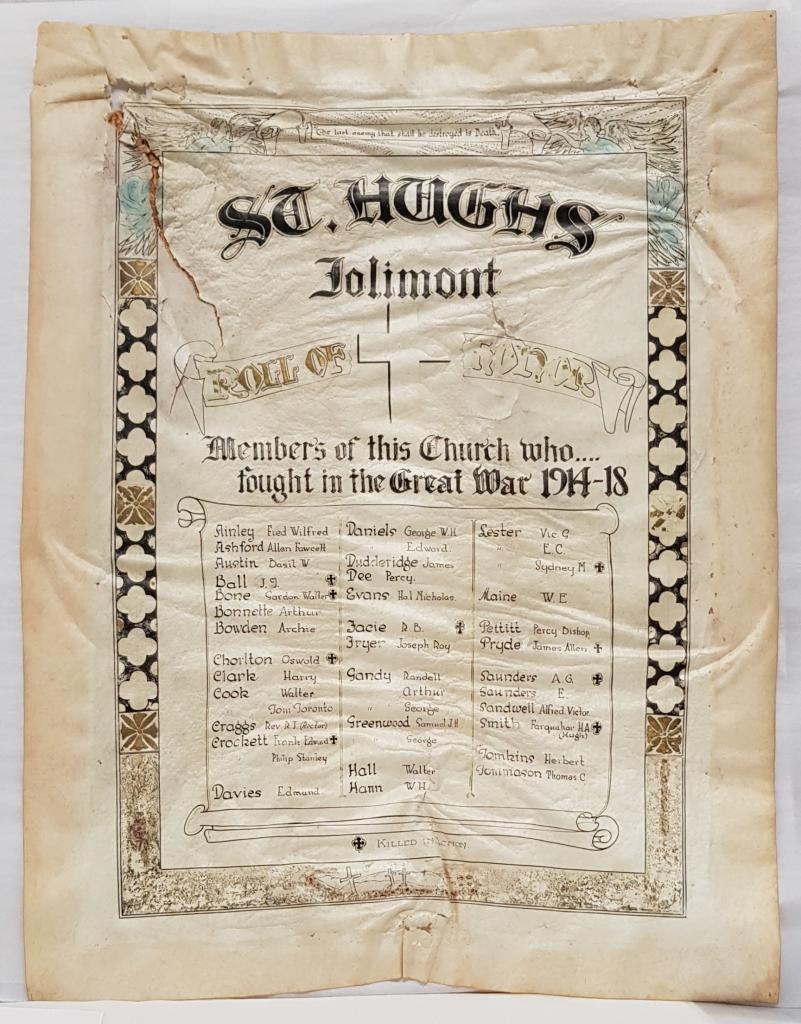 The last enemy that shall be destroyed is Death.
ST. HUGHS
Jolimont
ROLL OF HONOR
Members of this Church who....
fought in the Great War 1914-18
Ainley Fred Wilfred
Ashford Allan Fawcett
Austin Basil W
Ball J.S. ✠
Bone Gordon Walter ✠
Bonnette Arthur
Bowden Archie
Chorlton Oswold ✠
Clark Harry
Cook Walter
" Tom Toronto
Craggs Rev. R.J. (Rector)
Crockett Frank Edward ✠
" Philip Stanley
Davies Edmund
Daniels George W.H.
" Edward.
Dudderidge James
Dee Percy.
Evans Hal Nicholas.
Facie R.B. ✠
Fryer Joseph Roy
Gandy Randell
" Arthur
" George
Greenwood Samuel J.H
" George
Hall Walter
Hann W.H.
Lester Vic G
" E.C.
" Sydney M ✠
Maine W.E.
Pettitt Percy Bishop
Pryde James Allen ✠
Saunders A.G. ✠
Saunders E.
Sandwell Alfred Victor
Smith Farquhar H.A. ✠
(Hugh)
Tomkins Herbert
Tommason Thomas C
✠ KILLED IN ACTION.